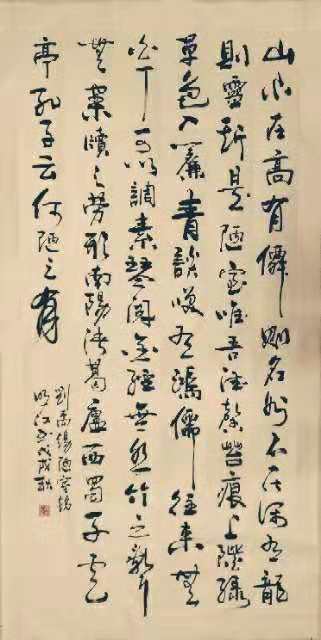 山不在高有僊則名水不在深有龍
則靈斯是陋室唯吾德馨苔痕上階綠
草色入簾青談笑有鴻儒往來無
白丁可以調素琴閱金經無絲竹之亂耳
無案牘之勞形南陽諸葛廬西蜀子雲
亭孔子云何陋之有
劉禹錫陋室銘
明江書戊戌秋